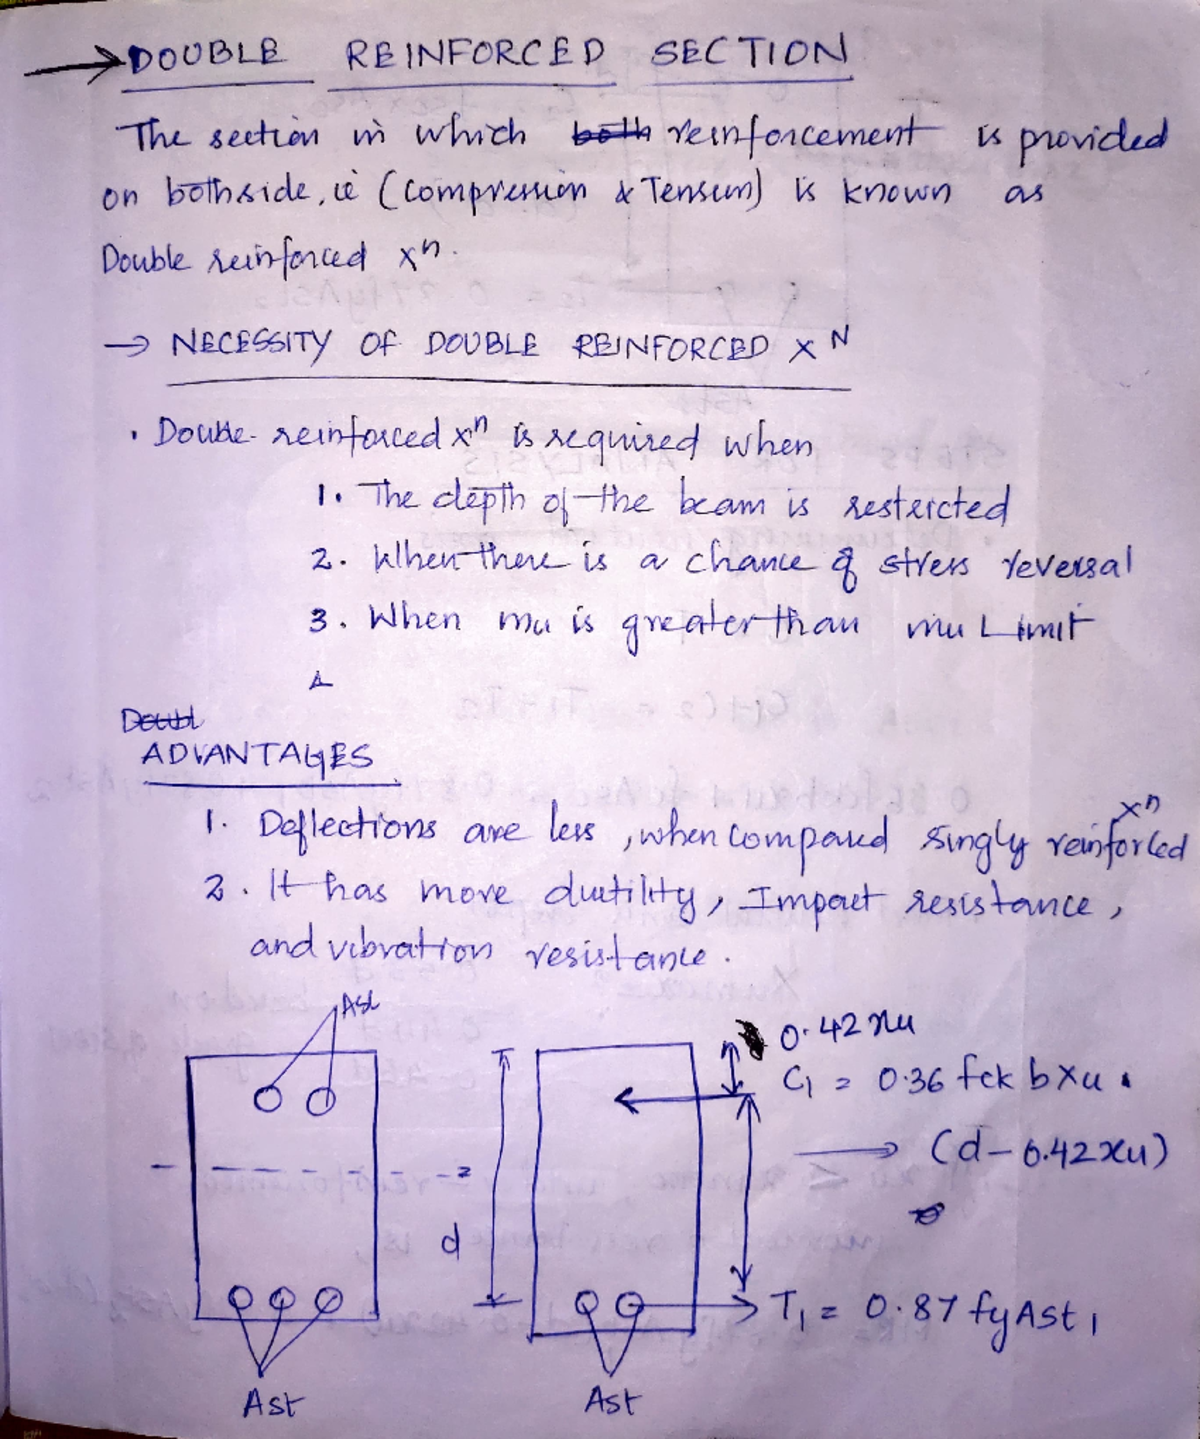 → DOUBLE REINFORCED SECTION
The section in which both reinforcement is provided
on bothside, ie (Compression & Tension) is known as
Double reinforced xn.
→ NECESSITY OF DOUBLE REINFORCED XN
• Double reinforced xn is required when
1. The depth of the beam is restercted
2. When there is a chance of stress reversal
3. When mu is greater than mu Limit
Doubl
ADVANTAGES
1. Deflections are less, when compared singly reinforced xn
2. It has more ductility, Impact resistance,
and vibration resistance.
Ast
0.42xu
C1 = 0.36 fck b Xu.
→ (d - 0.42xu)
d
T1 = 0.87 fy Ast1
Ast
Ast